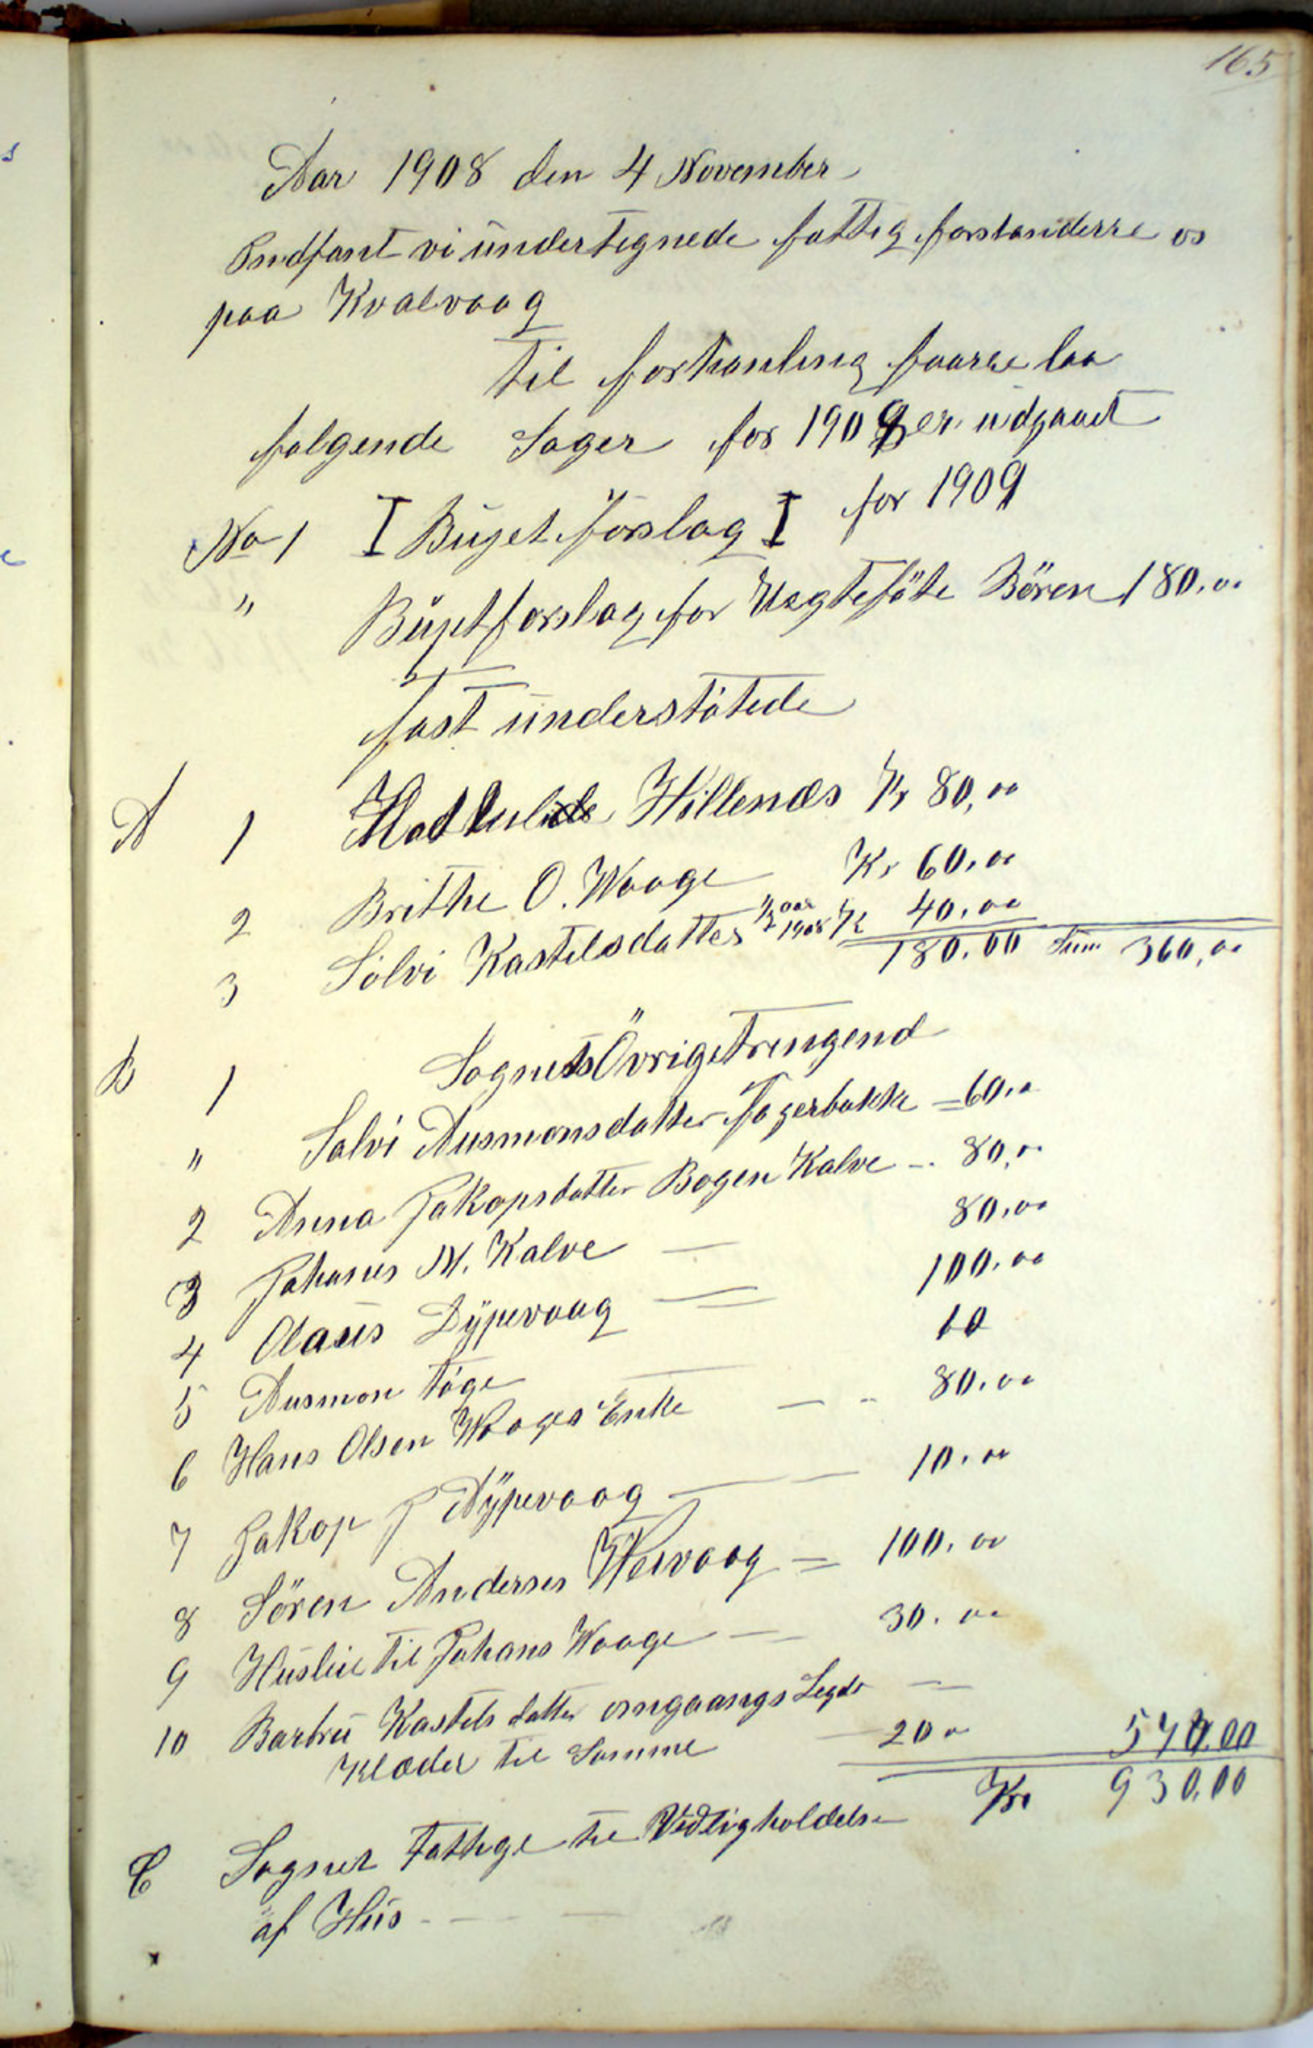 165
Aar 1908 den 4 November
Indfant vi undertegnede fattig forstanderre os
paa Kvalvaag
til forhanling faarre laa
følgende Sager for 1909 er udgaaet
No 1 I Bujet forslag I for 1909
" Bujetforslag for Uægteføte Bören 180.00
fast understötede
A 1 Willenæs Kr 80,00
2 Brithe O. Waage Kr 60.00
3 Sølvi Kastelsdatter ½ aar 1908 Kr 40.00
180.00 Sum 360,00
B 1 Sognets Övrige Trengend
" Salvi Ausmonsdatter Fagerbakke = 60.00
2 Anna Jakopsdatter Bogen Kalve - 80.00
3 Johanes M. Kalve — 80.00
4 Olaus Dÿpevaag == 100.00
5 Ausmon Töge — 10
6 Hans Olsen Waages Enke - - 80.00
7 Jakop J Dÿpevaag — — 10.00
8 Sören Anderses Weivaag = 100.00
9 Husleie til Johans Waage — 30.00
10 Barbru Kastels datter omgaangs Legde —
Klæder til Samme — 20 00 570.00
Kr 930.00
C Sognets Fattige til Vedligholdelse
af Hus - — —